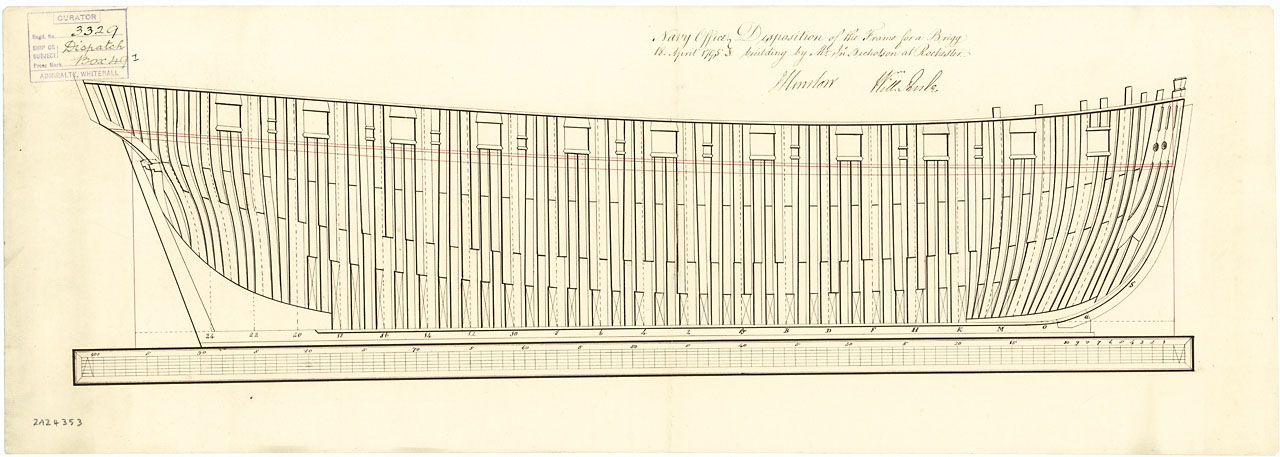 CURATOR
Regd. No. 3329
SHIP OR SUBJECT Dispatch
Press Mark Box 49
ADMIRALTY, WHITEHALL
Navy Office Disposition of the Frame for a Brigg
18 April 1795 building by Mr. Jn. Nicholson at Rochester
JHenslow Willm Rule
24 22 20 18 16 14 12 10 8 6 4 2 B D F H K M O Q S
100 5 90 5 80 5 70 5 60 5 50 5 40 5 30 5 20 15 10 9 8 7 6 5 4 3 2 1
ZAZ4353